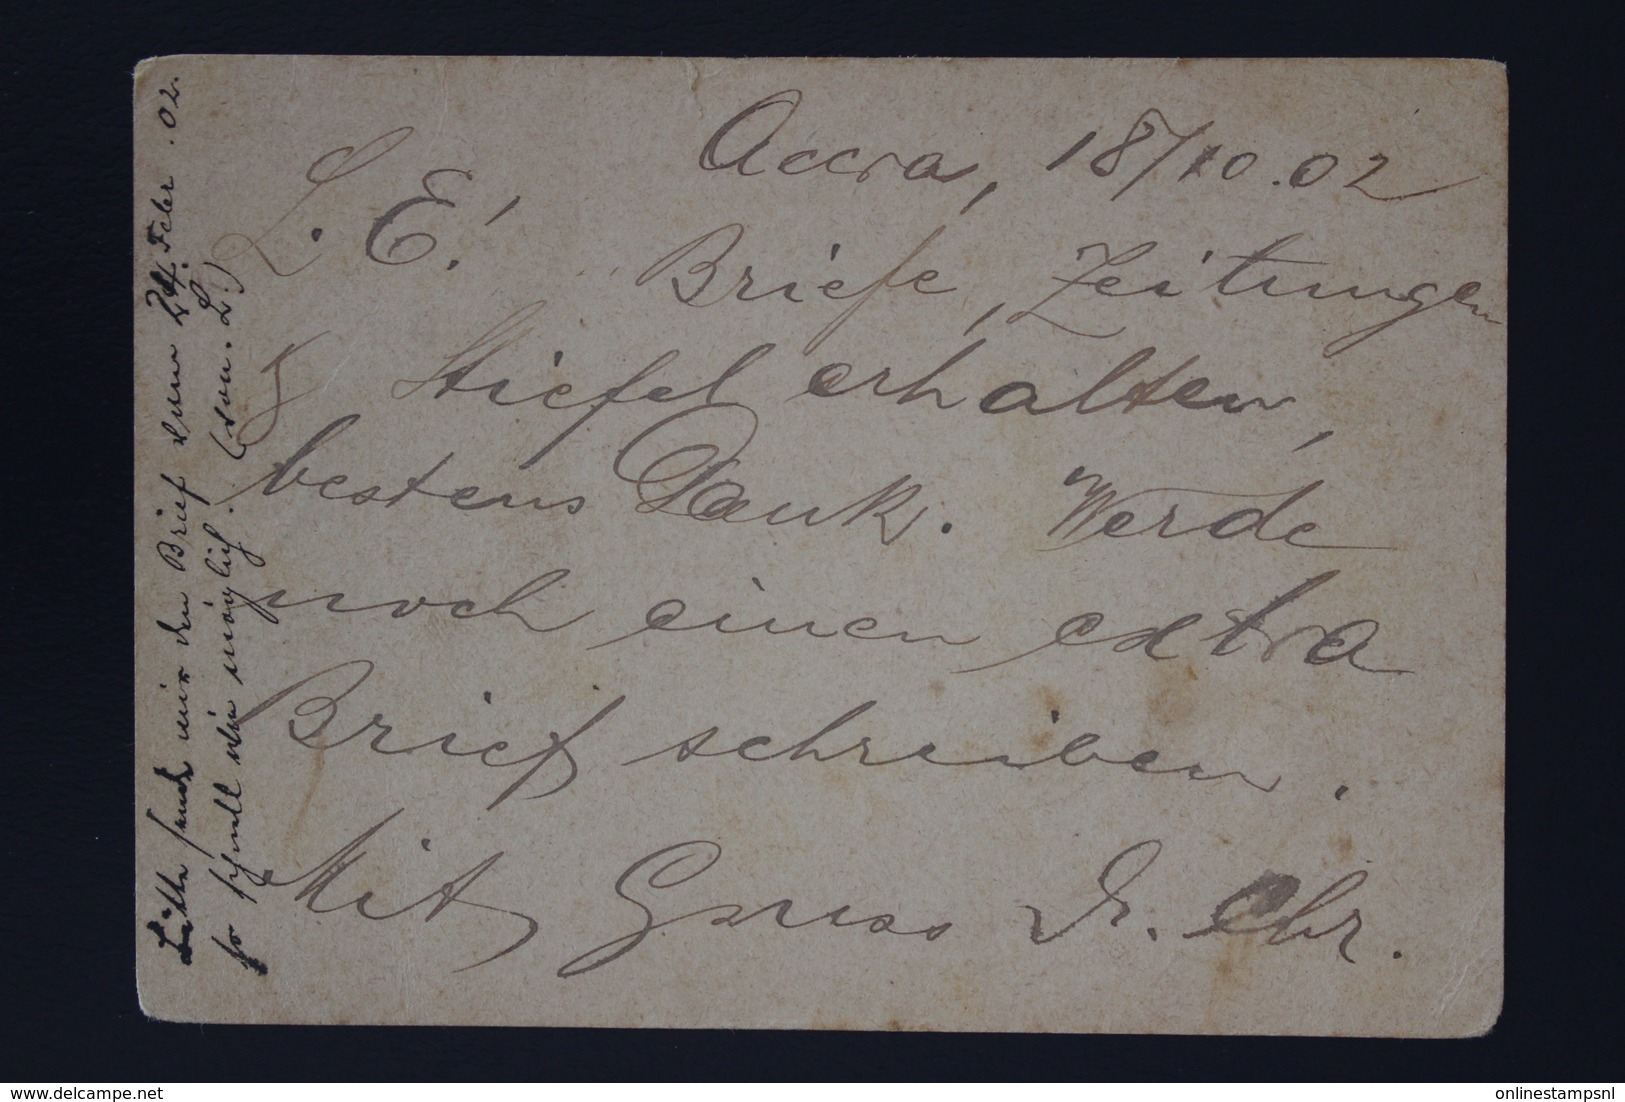 Accra, 18/10.02
L. E.!
Briefe, Zeitungen
& Stiefel erhalten,
bestens Dank. Werde
noch einen extra
Brief schreiben.
Mit Gruss Dr. Chr.
Bitte sende mir den Brief vom 24. Febr. 02.
so schnell wie möglich! (von L.)
onlinestampsnl